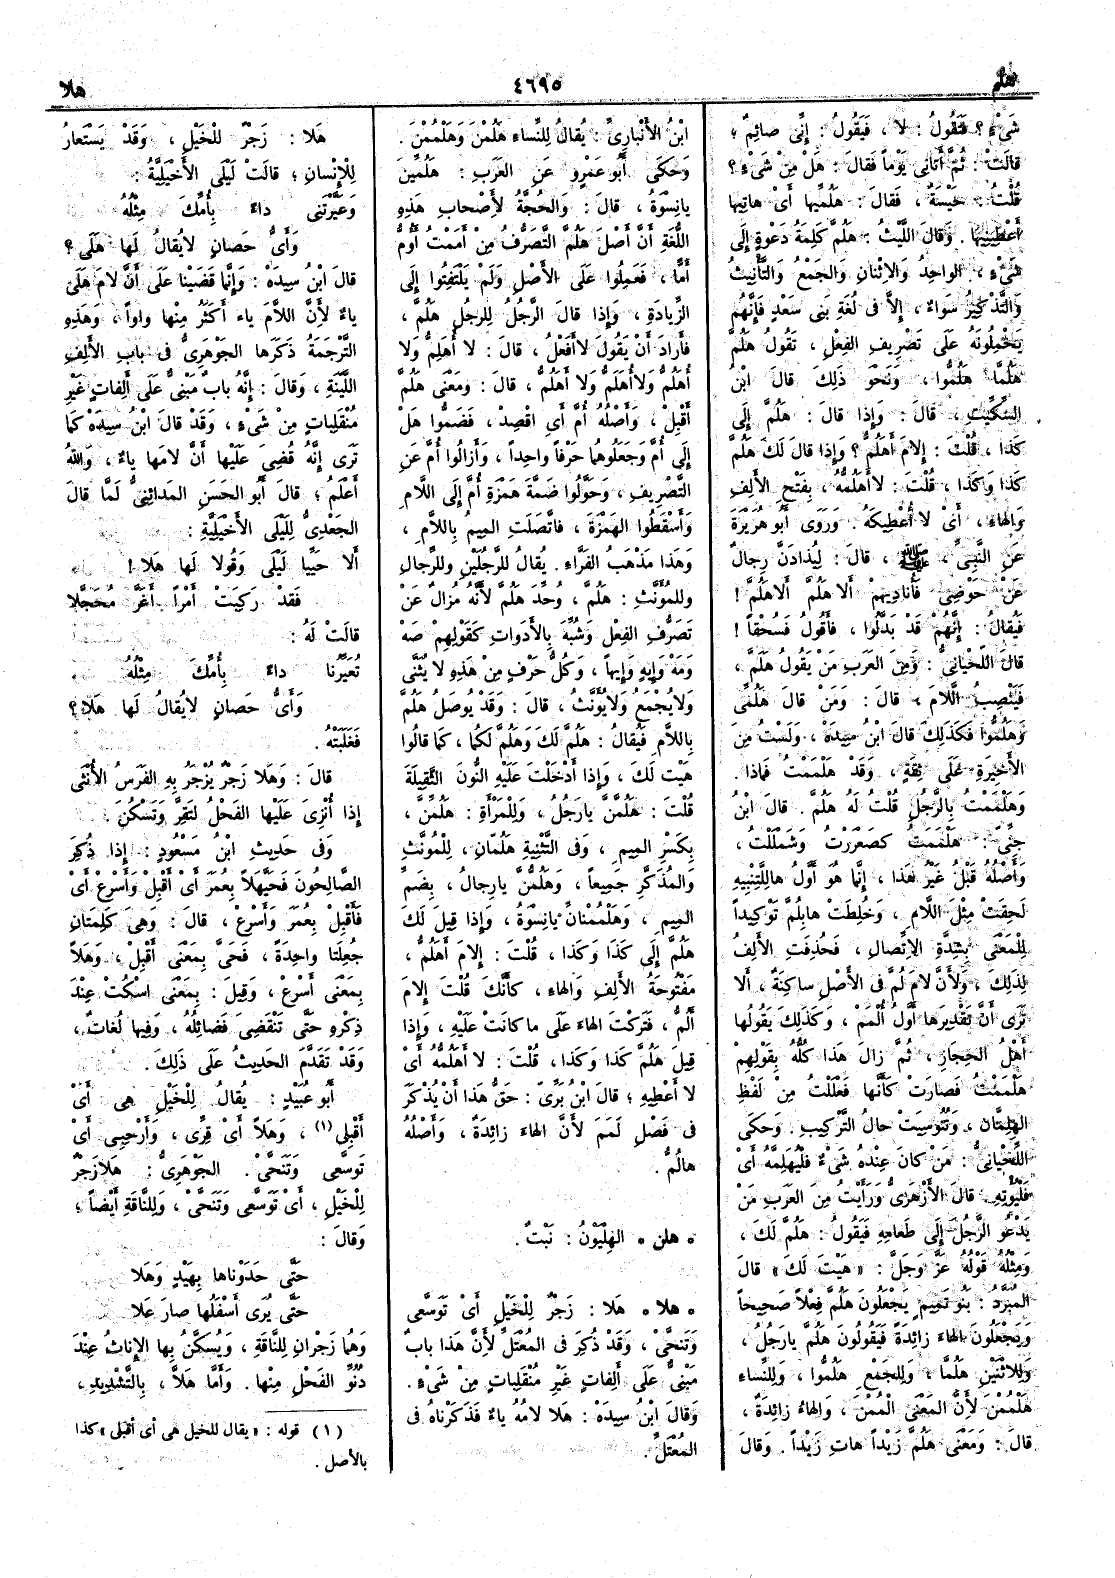 هلم
٤٦٩٥
هلا
شَىْءٍ ؟ فَتَقُولُ : لا ، فَيَقُولُ : إِنِّى صائِمٌ ؛
قالَتْ : ثُمَّ أَتانِى يَوْماً فَقالَ : هَلْ مِنْ شَىْءٍ ؟
قُلْتُ : حَيْسَةٌ ، فَقالَ : هَلُمِّيها أَىْ هاتِيها
أَعْطِينِيها . وَقالَ اللَّيْثُ : هَلُمَّ كَلِمَةُ دَعْوَةٍ إِلَى
شَىْءٍ ، الْواحِدُ وَالاِثْنانِ وَالْجَمْعُ وَالتَّأْنِيثُ
وَالتَّذْكِيرُ سَواءٌ ، إِلاَّ فى لُغَةِ بَنِى سَعْدٍ فَإِنَّهُمْ
يَحْمِلُونَهُ عَلَى تَصْرِيفِ الْفِعْلِ ، تَقُولُ هَلُمَّ
هَلُمَّا هَلُمُّوا ، وَنَحْوَ ذلِكَ قالَ ابْنُ
السِّكِّيتِ ، قالَ : وَإِذا قالَ : هَلُمَّ إِلَى
كَذا ، قُلْتَ : إِلامَ أَهَلُمُّ ؟ وَإِذا قالَ لَكَ هَلُمَّ
كَذا وَكَذا ، قُلْتَ : لا أَهَلُمُّهُ ، بِفَتْحِ الأَلِفِ
وَالْهاءِ ، أَىْ لا أُعْطِيكَهُ . وَرَوَى أَبُو هُرَيْرَةَ
عَنِ النَّبِىِّ ، ﷺ ، قالَ : لَيُذادَنَّ رِجالٌ
عَنْ حَوْضِى فَأُنادِيهِمْ أَلا هَلُمَّ أَلا هَلُمَّ !
فَيُقالُ : إِنَّهُمْ قَدْ بَدَّلُوا ، فَأَقُولُ فَسُحْقاً !
قالَ اللِّحْيانِىُّ : وَمِنَ الْعَرَبِ مَنْ يَقُولُ هَلَمَّ ،
فَيَنْصِبُ اللاَّمَ ، قالَ : وَمَنْ قالَ هَلُمِّى
وَهَلُمُّوا فَكَذلِكَ قالَ ابْنُ سِيدَهْ ، وَلَسْتُ مِنَ
الأَخِيرَةِ عَلَى ثِقَةٍ ، وَقَدْ هَلْمَمْتُ فَماذا .
وَهَلْمَمْتُ بِالرَّجُلِ قُلْتُ لَهُ هَلُمَّ . قالَ ابْنُ
جِنِّى : هَلْمَمْتُ كَصَعْرَرْتُ وَشَمْلَلْتُ ،
وَأَصْلُهُ قَبْلُ غَيْرُ هذا ، إِنَّما هُوَ أَوَّلُ ها لِلتَّنْبِيهِ
لَحِقَتْ مِثْلَ اللاَّمِ ، وَخُلِطَتْ ها بِلُمَّ تَوْكِيداً
لِلْمَعْنَى بِشِدَّةِ الاِتِّصالِ ، فَحُذِفَتِ الأَلِفُ
لِذلِكَ ، وَلأَنَّ لامَ لُمَّ فى الأَصْلِ ساكِنَةٌ ، أَلا
تَرَى أَنَّ تَقْدِيرَها أَوَّلُ الْمُمْ ، وَكَذلِكَ يَقُولُها
أَهْلُ الْحِجازِ ، ثُمَّ زالَ هذا كُلُّهُ بِقَوْلِهِمْ
هَلْمَمْتُ فَصارَتْ كَأَنَّها فَعْلَلْتُ مِنْ لَفْظِ
الْهِلِمَّانِ ، وَتُنُوسِيَتْ حالُ التَّرْكِيبِ . وَحَكَى
اللِّحْيانِىُّ : مَنْ كانَ عِنْدَهُ شَىْءٌ فَلْيُهَلِمَّهُ أَىْ
فَلْيُؤْتِهِ . قالَ الأَزْهَرِىُّ وَرَأَيْتُ مِنَ الْعَرَبِ مَنْ
يَدْعُو الرَّجُلَ إِلَى طَعامِهِ فَيَقُولُ : هَلُمَّ لَكَ ،
وَمِثْلُهُ قَوْلُهُ عَزَّ وَجَلَّ : « هَيْتَ لَكَ » قالَ
الْمُبَرِّدُ : بَنُو تَمِيمٍ يَجْعَلُونَ هَلُمَّ فِعْلاً صَحِيحاً
وَيَجْعَلُونَ الْهاءَ زائِدَةً فَيَقُولُونَ هَلُمَّ يا رَجُلُ ،
وَلِلاِثْنَيْنِ هَلُمَّا ، وَلِلْجَمْعِ هَلُمُّوا ، وَلِلنِّساءِ
هَلْمُمْنَ لأَنَّ الْمَعْنَى الْمُمْنَ ، وَالْهاءُ زائِدَةٌ ،
قالَ : وَمَعْنَى هَلُمَّ زَيْداً هاتِ زَيْداً . وَقالَ
ابْنُ الأَنْبارِىِّ : يُقالُ لِلنِّساءِ هَلُمْنَ وَهَلْمُمْنَ .
وَحَكَى أَبُو عَمْرٍو عَنِ الْعَرَبِ : هَلُمِّينَ
يا نِسْوَةُ ، قالَ : وَالْحُجَّةُ لأَصْحابِ هذِهِ
اللُّغَةِ أَنَّ أَصْلَ هَلُمَّ التَّصَرُّفُ مِنْ أَمَمْتُ أَؤُمُّ
أَمًّا ، فَعَمِلُوا عَلَى الأَصْلِ وَلَمْ يَلْتَفِتُوا إِلَى
الزِّيادَةِ ، وَإِذا قالَ الرَّجُلُ لِلرَّجُلِ هَلُمَّ ،
فَأَرادَ أَنْ يَقُولَ لا أَفْعَلُ ، قالَ : لا أُهَلِمُّ وَلا
أُهَلُمُّ وَلا أُهَلَمُّ وَلا أَهَلُمُّ ، قالَ : وَمَعْنَى هَلُمَّ
أَقْبِلْ ، وَأَصْلُهُ أُمَّ أَىِ اقْصِدْ ، فَضَمُّوا هَلْ
إِلَى أُمَّ وَجَعَلُوهُما حَرْفاً واحِداً ، وَأَزالُوا أُمَّ عَنِ
التَّصْرِيفِ ، وَحَوَّلُوا ضَمَّةَ هَمْزَةِ أُمَّ إِلَى اللاَّمِ
وَأَسْقَطُوا الْهَمْزَةَ ، فَاتَّصَلَتِ الْمِيمُ بِاللاَّمِ ،
وَهذا مَذْهَبُ الْفَرَّاءِ . يُقالُ لِلرَّجُلَيْنِ وَلِلرِّجالِ
وَلِلْمُؤَنَّثِ : هَلُمَّ ، وُحِّدَ هَلُمَّ لأَنَّهُ مُزالٌ عَنْ
تَصَرُّفِ الْفِعْلِ وَشُبِّهَ بِالأَدَواتِ كَقَوْلِهِمْ صَهْ
وَمَهْ وَإِيهٍ وَإِيهاً ، وَكُلُّ حَرْفٍ مِنْ هذِهِ لا يُثَنَّى
وَلا يُجْمَعُ وَلا يُؤَنَّثُ ، قالَ : وَقَدْ يُوصَلُ هَلُمَّ
بِاللاَّمِ فَيُقالُ : هَلُمَّ لَكَ وَهَلُمَّ لَكُما ، كَما قالُوا
هَيْتَ لَكَ ، وَإِذا أَدْخَلْتَ عَلَيْهِ النُّونَ الثَّقِيلَةَ
قُلْتَ : هَلُمَّنَّ يا رَجُلُ ، وَلِلْمَرْأَةِ : هَلُمِّنَّ ،
بِكَسْرِ الْمِيمِ ، وَفى التَّثْنِيَةِ هَلُمَّانِّ ، لِلْمُؤَنَّثِ
وَالْمُذَكَّرِ جَمِيعاً ، وَهَلُمُّنَّ يا رِجالُ ، بِضَمِّ
الْمِيمِ ، وَهَلْمُمْنانِّ يا نِسْوَةُ ، وَإِذا قِيلَ لَكَ
هَلُمَّ إِلَى كَذا وَكَذا ، قُلْتَ : إِلامَ أَهَلُمُّ ،
مَفْتُوحَةَ الأَلِفِ وَالْهاءِ ، كَأَنَّكَ قُلْتَ إِلامَ
أَلُمُّ ، فَتَرَكْتَ الْهاءَ عَلَى ما كانَتْ عَلَيْهِ ، وَإِذا
قِيلَ هَلُمَّ كَذا وَكَذا ، قُلْتَ : لا أَهَلُمُّهُ أَىْ
لا أُعْطِيهِ ؛ قالَ ابْنُ بَرِّىّ : حَقُّ هذا أَنْ يُذْكَرَ
فى فَصْلِ لَمَمَ لأَنَّ الْهاءَ زائِدَةٌ ، وَأَصْلُهُ
هالُمَّ .
• هلن • الْهِلْيَوْنُ : نَبْتٌ .
• هلا • هَلا : زَجْرٌ لِلْخَيْلِ أَىْ تَوَسَّعِى
وَتَنَحَّىْ ، وَقَدْ ذُكِرَ فى الْمُعْتَلِّ لأَنَّ هذا بابٌ
مَبْنِىٌّ عَلَى أَلِفاتٍ غَيْرِ مُنْقَلِباتٍ مِنْ شَىْءٍ .
وَقالَ ابْنُ سِيدَهْ : هَلا لامُهُ ياءٌ فَذَكَرْناهُ فى
الْمُعْتَلِّ .
هَلا : زَجْرٌ لِلْخَيْلِ ، وَقَدْ يُسْتَعارُ
لِلإِنْسانِ ؛ قالَتْ لَيْلَى الأَخْيَلِيَّةُ :
وَعَيَّرْتَنِى داءً بِأُمِّكَ مِثْلُهُ
وَأَىُّ حَصانٍ لا يُقالُ لَها هَلَى ؟
قالَ ابْنُ سِيدَهْ : وَإِنَّما قَضَيْنا عَلَى أَنَّ لامَ هَلَى
ياءٌ لأَنَّ اللاَّمَ ياءً أَكْثَرُ مِنْها واواً ، وَهذِهِ
التَّرْجَمَةُ ذَكَرَها الْجَوْهَرِىُّ فى بابِ الأَلِفِ
اللَّيِّنَةِ ، وَقالَ : إِنَّهُ بابٌ مَبْنِىٌّ عَلَى أَلِفاتٍ غَيْرِ
مُنْقَلِباتٍ مِنْ شَىْءٍ ، وَقَدْ قالَ ابْنُ سِيدَهْ كَما
تَرَى إِنَّهُ قُضِىَ عَلَيْها أَنَّ لامَها ياءٌ ، وَاللهُ
أَعْلَمُ ؛ قالَ أَبُو الْحَسَنِ الْمَدائِنِىُّ لَمَّا قالَ
الْجَعْدِىُّ لِلَيْلَى الأَخْيَلِيَّةِ :
أَلا حَيِّيا لَيْلَى وَقُولا لَها هَلا !
فَقَدْ رَكِبَتْ أَمْراً أَغَرَّ مُحَجَّلا
قالَتْ لَهُ :
تُعَيِّرُنا داءً بِأُمِّكَ مِثْلُهُ
وَأَىُّ حَصانٍ لا يُقالُ لَها هَلا ؟
فَغَلَبَتْهُ .
قالَ : وَهَلا زَجْرٌ يُزْجَرُ بِهِ الْفَرَسُ الأُنْثَى
إِذا أُنْزِىَ عَلَيْها الْفَحْلُ لِتَقِرَّ وَتَسْكُنَ .
وَفى حَدِيثِ ابْنِ مَسْعُودٍ : إِذا ذُكِرَ
الصَّالِحُونَ فَحَيَّهَلاً بِعُمَرَ أَىْ أَقْبِلْ وَأَسْرِعْ أَىْ
فَأَقْبِلْ بِعُمَرَ وَأَسْرِعْ ، قالَ : وَهِىَ كَلِمَتانِ
جُعِلَتا واحِدَةً ، فَحَىَّ بِمَعْنَى أَقْبِلْ ، وَهَلاَ
بِمَعْنَى أَسْرِعْ ، وَقِيلَ : بِمَعْنَى اسْكُتْ عِنْدَ
ذِكْرِهِ حَتَّى تَنْقَضِىَ فَضائِلُهُ ، وَفِيها لُغاتٌ ،
وَقَدْ تَقَدَّمَ الْحَدِيثُ عَلَى ذلِكَ .
أَبُو عُبَيْدٍ : يُقالُ لِلْخَيْلِ هِى أَىْ
أَقْبِلِى (١) ، وَهَلاً أَىْ قِرِّى ، وَأَرْحِبِى أَىْ
تَوَسَّعِى وَتَنَحَّىْ . الْجَوْهَرِىُّ : هَلا زَجْرٌ
لِلْخَيْلِ ، أَىْ تَوَسَّعِى وَتَنَحَّىْ ، وَلِلنَّاقَةِ أَيْضاً ؛
وَقالَ :
حَتَّى حَدَوْناها بِهَيْدٍ وَهَلا
حَتَّى يُرَى أَسْفَلُها صارَ عَلا
وَهُما زَجْرانِ لِلنَّاقَةِ ، وَيُسَكَّنُ بِها الإِناثُ عِنْدَ
دُنُوِّ الْفَحْلِ مِنْها . وَأَمَّا هَلاَّ ، بِالتَّشْدِيدِ ،
(١) قوله : « يقال للخيل هى أى أقبلى » كذا
بالأصل .